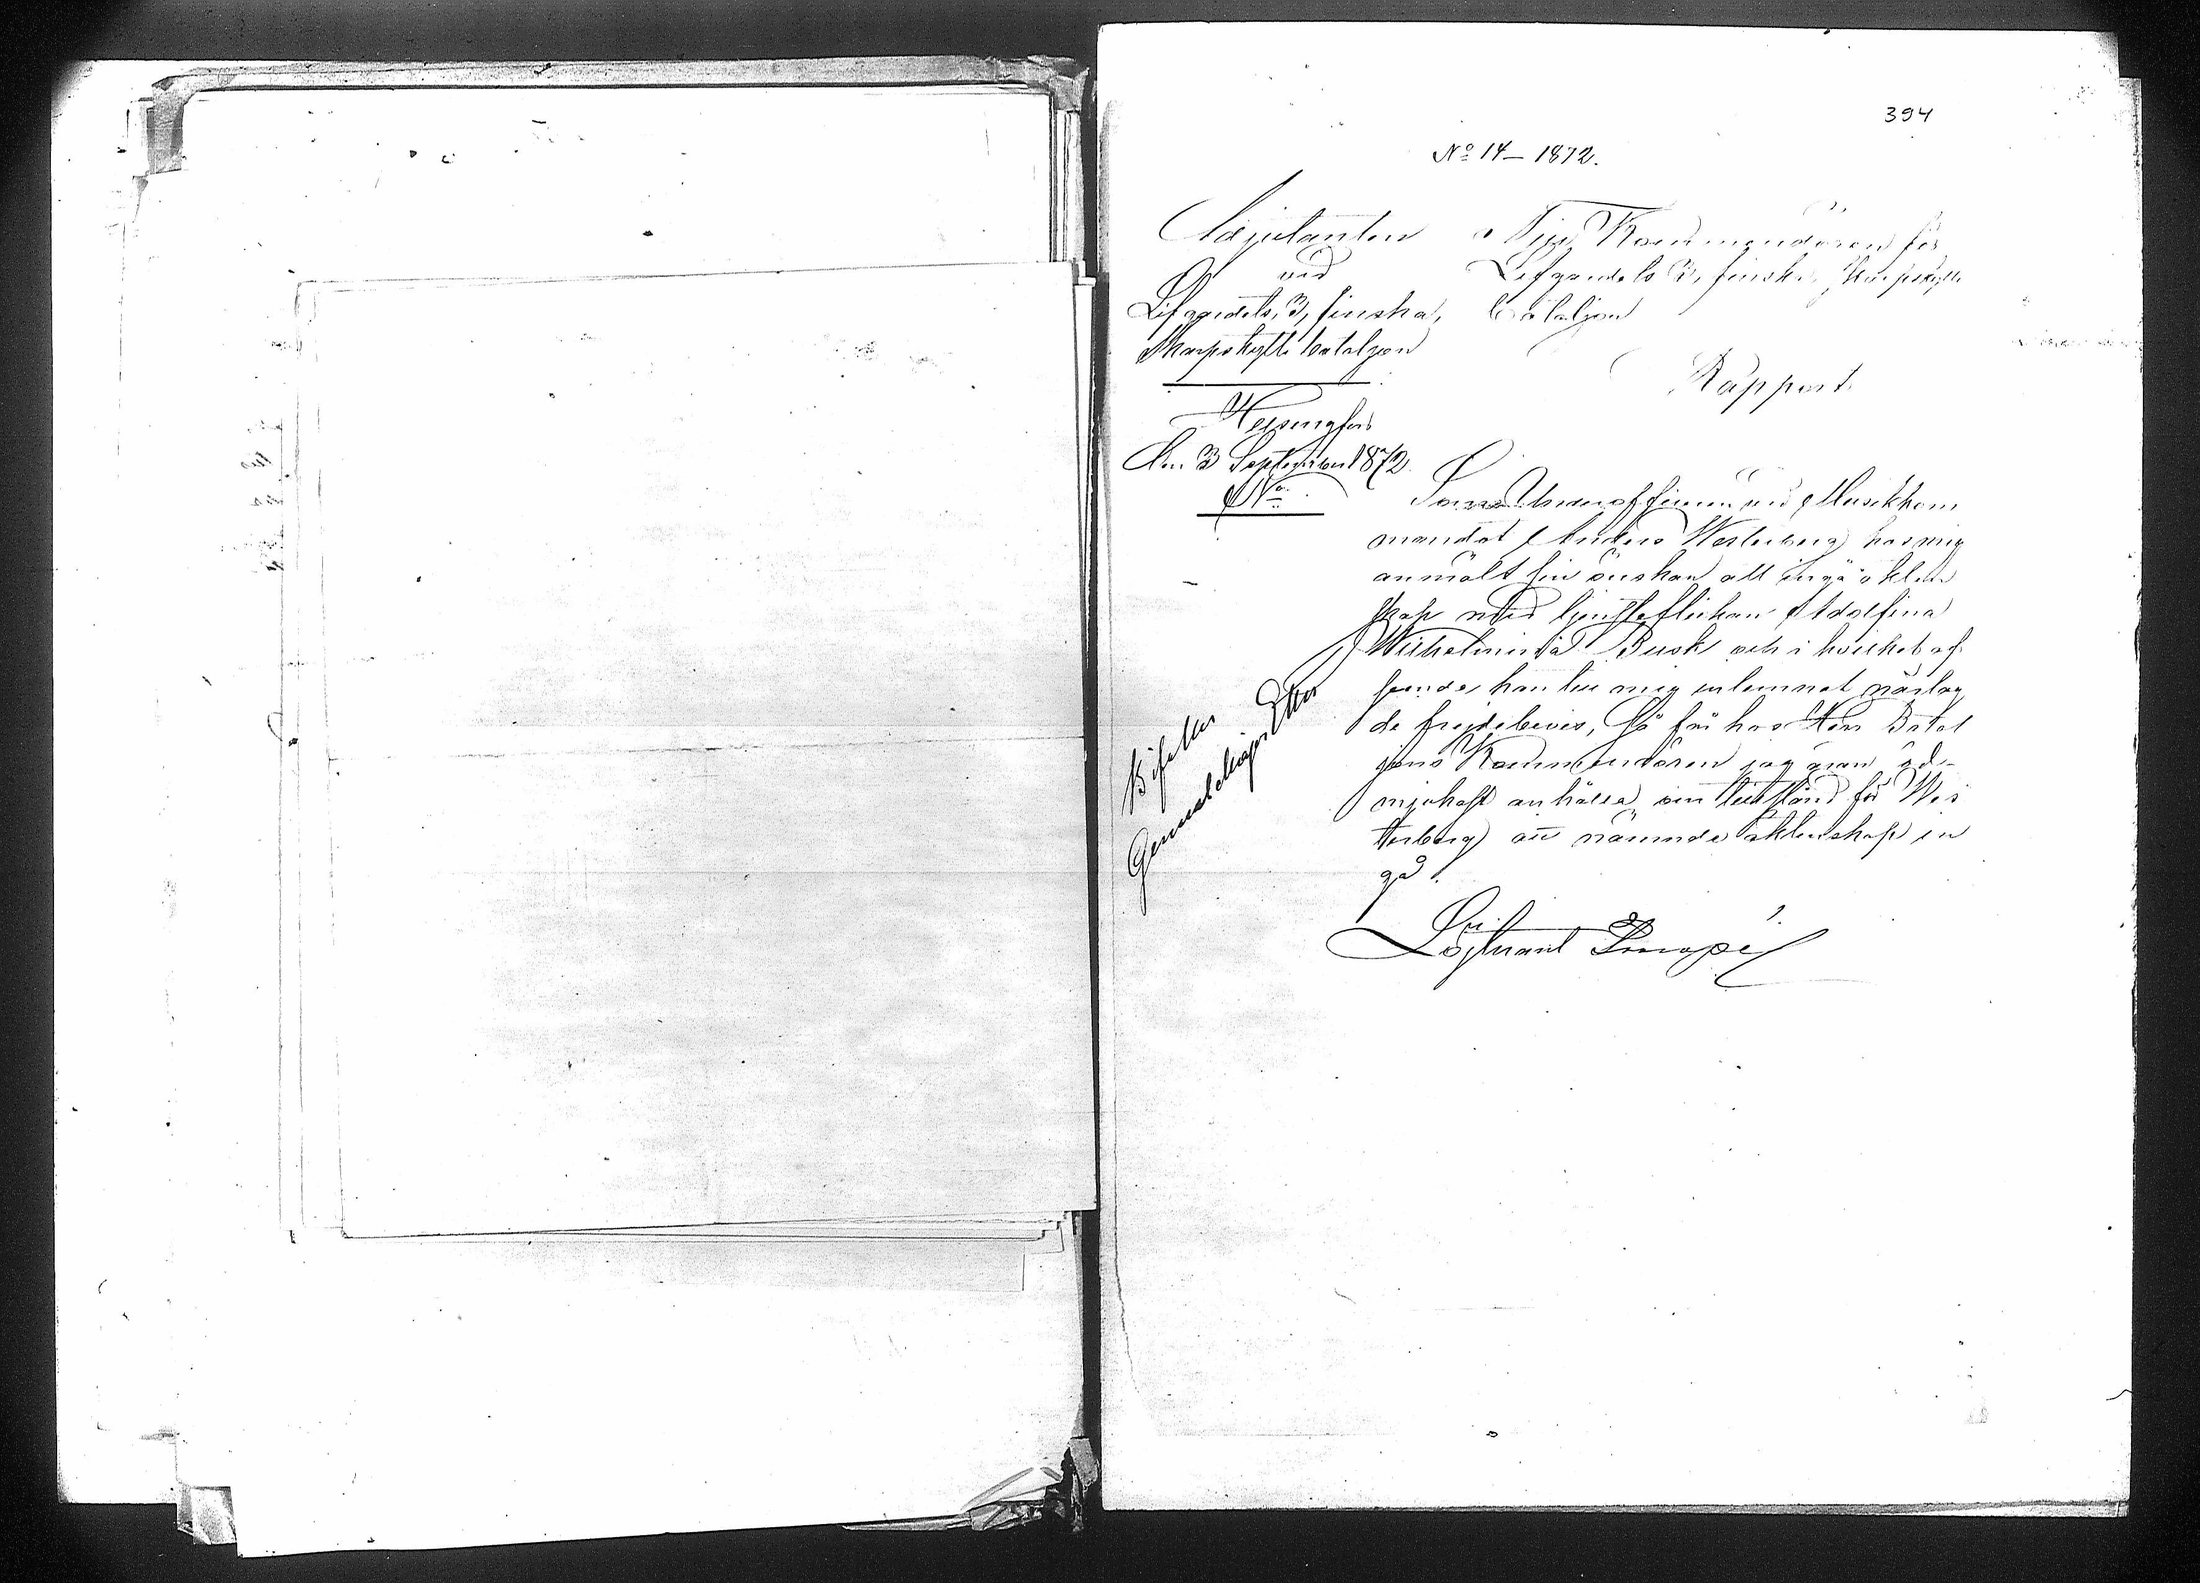 394
No 14 – 1872.
Adjutanten
vid
Lifgardets, 3, finska,
Skarpskytte bataljon
Helsingfors
den 3 September 1872
No
Till Kommendören för
Lifgardets 3, finska, Skarpskytte
bataljon
Rapport.
Som Underofficeren vid Musikkom
mandot Anders Westerberg hos mig
anmält sin önskan att ingå äkten
skap med tjensteflickan Adolfina
Wilhelmina Busk och i hvilket af
seende han till mig inlemnat närlag
de frejdebevis, Så får hos Herr Batal
jons Kommendören jag äran öd-
mjukast anhålla om tillstånd för Wes
terberg att nämnde äktenskap in
gå.
Löjtnant
Bifalles
Generalmajor Etter